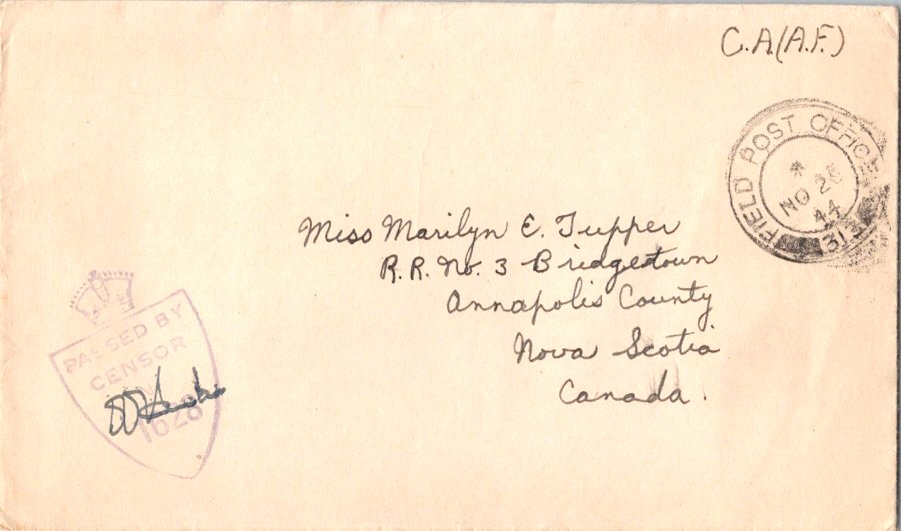 C.A.(A.F.)
FIELD POST OFFICE
*
NO 25
44
Miss Marilyn E. Tupper
R.R. No. 3 Bridgetown
Annapolis County
Nova Scotia
Canada.
PASSED BY
CENSOR
1628